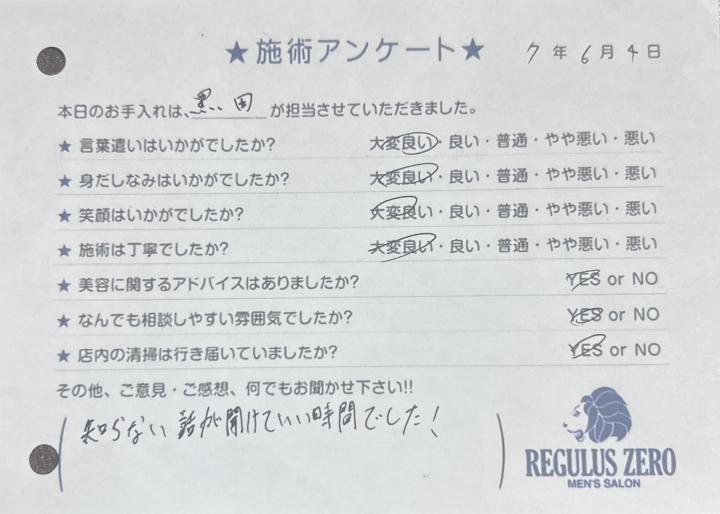 ★施術アンケート★ 7年6月4日
本日のお手入れは、黒田が担当させていただきました。
★ 言葉遣いはいかがでしたか? 大変良い・良い・普通・やや悪い・悪い
★ 身だしなみはいかがでしたか? 大変良い・良い・普通・やや悪い・悪い
★ 笑顔はいかがでしたか? 大変良い・良い・普通・やや悪い・悪い
★ 施術は丁寧でしたか? 大変良い・良い・普通・やや悪い・悪い
★ 美容に関するアドバイスはありましたか? YES or NO
★ なんでも相談しやすい雰囲気でしたか? YES or NO
★ 店内の清掃は行き届いていましたか? YES or NO
その他、ご意見・ご感想、何でもお聞かせ下さい!!
知らない話が聞けていい時間でした!
REGULUS ZERO
MEN'S SALON